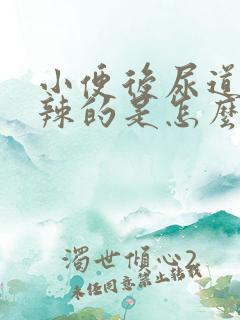 小便後尿道
辣的是怎麼
濁世傾心2
未经同意禁止转载